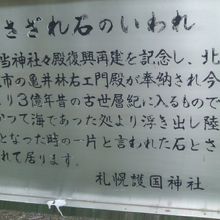 さざれ石のいわれ
当神社々殿復興再建を記念し、北
市の亀井林右エ門殿が奉納され今
り3億年昔の古世層紀に入るもので
かつて海であった処より浮き出し陸
となつた時の一片と言われた石とさ
れて居ります。
札幌護国神社